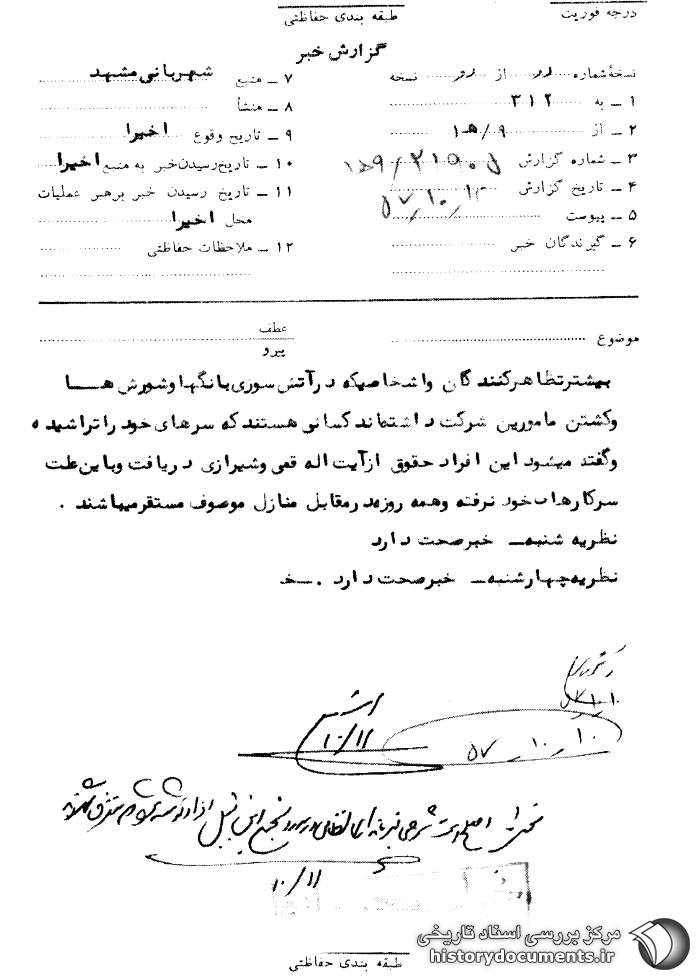 درجه فوریت
طبقه بندی حفاظتی
گزارش خبر
نسخهٔ شماره رر از رر نسخه
۱ ــ به ۳۱۲
۲ ــ از ۹/هـ۱
۳ ــ شماره گزارش
۴ ــ تاریخ گزارش
۵ ــ پیوست
۶ ــ گیرندگان خبر
۷ ــ منبع شهربانی مشهد
۸ ــ منشأ
۹ ــ تاریخ وقوع اخیرا
۱۰ ــ تاریخ رسیدن خبر به منبع اخیرا
۱۱ ــ تاریخ رسیدن خبر برهبر عملیات
محل اخیرا
۱۲ ــ ملاحظات حفاظتی
موضوع
عطف
پیرو
بیشتر تظاهرکنندگان واشخاصیکه درآتش سوری بانگها وشورش هــا
وکشتن مامورین شرکت داشته‌اند کسانی هستند که سرهای خود را تراشیده
وگفته میشود این افراد حقوق ازآیت اله قمی وشیرازی دریافت وباین علت
سرکارهای خود نرفته وهمه روزه درمقابل منازل موصوف مستقرمیباشند .
نظریه شنبه‌ــ خبرصحت دارد
نظریه چهارشنبه‌ــ خبرصحت دارد .ــخ
۱۰/۱۱
۱۰ ــ ۱۰ ــ ۵۷
۱۰/۱۱
مرکز بررسی اسناد تاریخی
historydocuments.ir
طبقه بندی حفاظتی